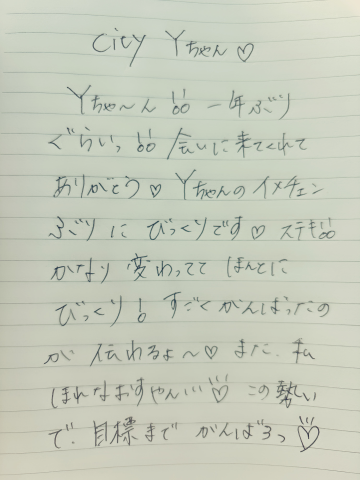 City Yちゃん♡
Yちゃ〜ん!! 一年ぶり
ぐらいっ!! 会いに来てくれて
ありがとう♡ Yちゃんのイメチェン
ぶりに びっくりです♡ ステキ!!
かなり 変わってて ほんとに
びっくり! すごく がんばったの
が 伝わるよ〜♡ また、私
ほれなおすやん…♡ この勢い
で、目標まで がんばろっ♡